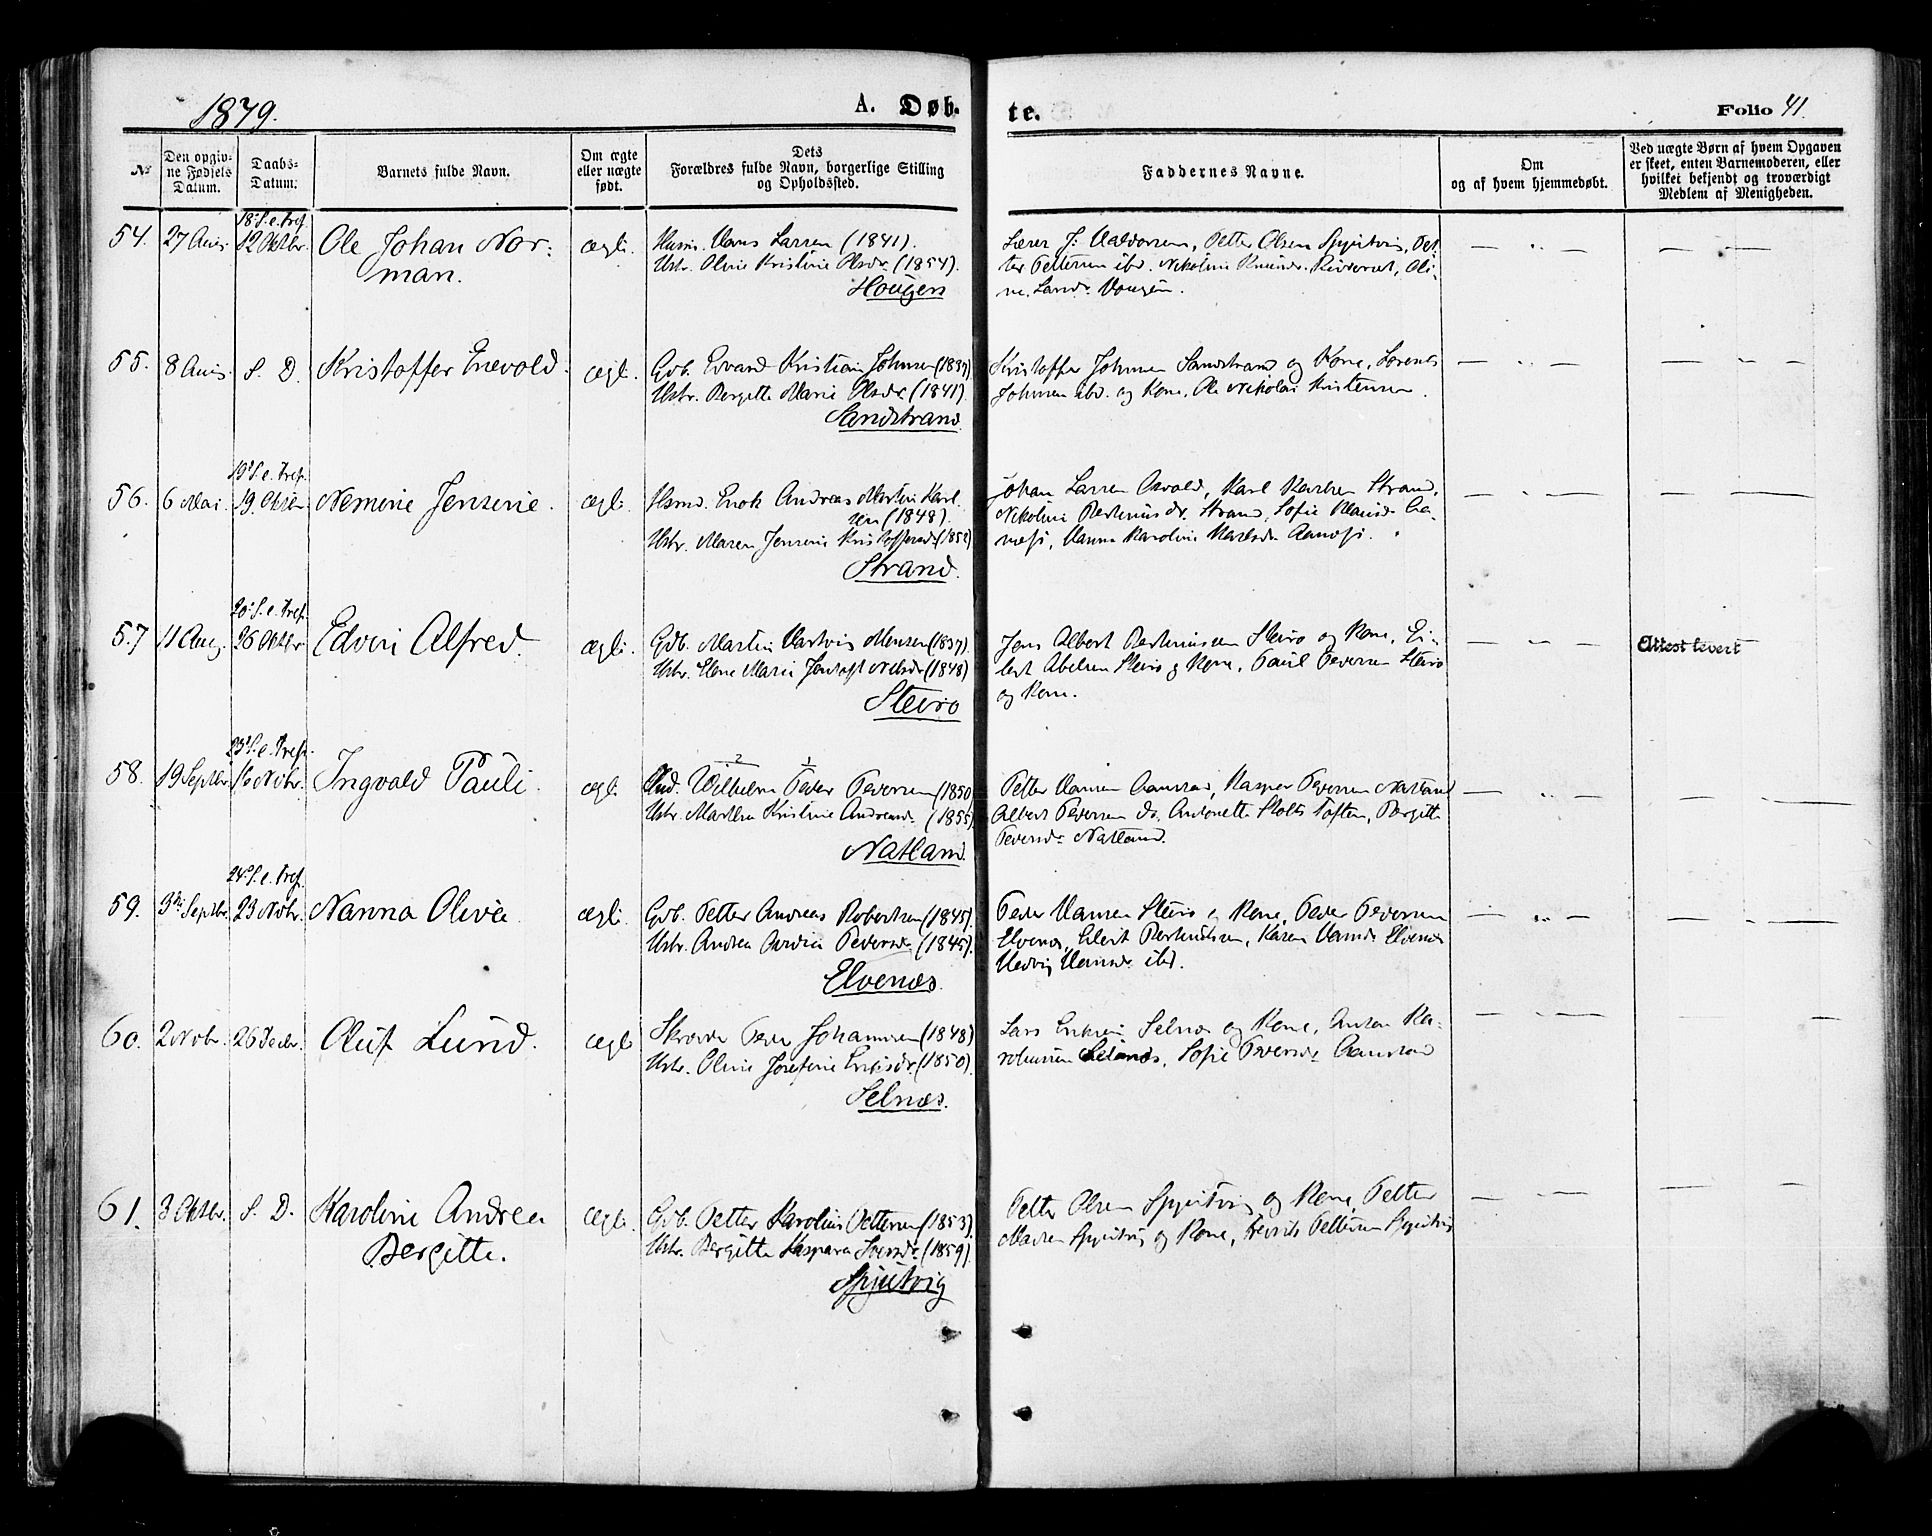 1879.
A. Døb.
te.
Folio 41.
№
Den opgiv-
ne Fødsels
Datum.
Daabs-
Datum.
Barnets fulde Navn.
Om ægte
eller uægte
født.
Dets
Forældres fulde Navn, borgerlige Stilling
og Opholdssted.
Faddernes Navne.
Om
og af hvem hjemmedøbt.
Ved uægte Børn af hvem Opgaven
er skeet, enten Barnemoderen, eller
hvilket bekjendt og troværdigt
Medlem af Menigheden.
18 S. e. Tref.
54. 27 Aug. 12 Oktbr. Ole Johan Nor-
man.
ægt. Husm. Hans Larsen (1841).
Hstr. Oline Kristine Olsdr. (1854).
Hougen
Lærer J. Haldorsen, Petter Olsen Spjutvig, Pet-
ter Pettersen ibd. Nikoline Knudsdr. Oli-
ne Larsdr. Hougen.
55. 8 Aug. S. D. Kristoffer Enevold.
ægt. Gdb. Edvard Kristian Johnsen (1839)
Hstr. Bergitte Marie Olsdr. (1841).
Sandstrand
Kristoffer Johnsen Sandstrand og Kone, Lorents
Johnsen ibd. og Kone, Ole Nikolai Kristensen.
19 S. e. Tref.
56. 6 Mai. 19 Oktbr. Nemine Jensine.
ægt. Husmd. Enok Andreas Martin Karl-
sen (1848).
Hstr. Maren Jensine Kristoffersdr. (1852)
Strand.
Johan Larsen Osvald, Karl Karlsen Strand,
Nikoline Strand, Sofie Aa-
næs, Hanna Karoline Karlsdr. Aanæs.
20 S. e. Tref.
57 11 Aug. 26 Oktbr. Edvin Alfred.
ægt. Gdb. Martin Hartvig Monsen (1837)
Hstr. Elene Marie Jentoft Nilsdr. (1848)
Steiro
Jens Albert Steiro og Kone, Ei-
lert Abelsen Steiro og Kone, Paul Pedersen Steiro
og Kone.
Attest levert
23 S. e. Tref.
58. 19 Septbr. 16 Novbr. Ingvald Pauli.
2 1
ægt. Ind. Wilhelm Peder Pedersen (1850)
Hstr. Martha Kristine Andreasdr. (1855)
Natland.
Petter Hansen Aanstad, Kasper Pedersen Natland
Albert Pedersen do. Antonette Stolts Toften, Bergitte
Pedersdr. Natland.
24 S. e. Tref.
59. 3die Septbr. 23 Novbr. Nanna Olivia
ægt. Gdb. Petter Andreas Robertsen (1845)
Hstr. Andrea Pedersdr. (1845).
Elvenæs.
Peder Hansen Steiro og Kone, Peder Pedersen
Elvenæs, Edert, Karen Hansdr. Elvenæs
Hedvig Hansdr. ibd.
60. 2 Novbr. 26 Decbr. Oluf Lund.
ægt. Peder Johannesen (1848)
Hstr. Oline Josefine Eriksdr. (1850).
Selnæs.
Lars Eriksen Selnæs og Kone, Anton Ka-
Selnæs, Sofie Pedersdr. Aanstad
61. 3 Oktbr. S. D. Karoline Andrea
Bergitte.
ægt. Gdb. Petter Karolius Pettersen (1853)
Hstr. Bergitte Kaspara Iversdr. (1859).
Spjutvig
Petter Olsen Spjutvig og Kone, Petter
Madsen Spjutvig og Kone, Fredrik Pettersen Spjutvig